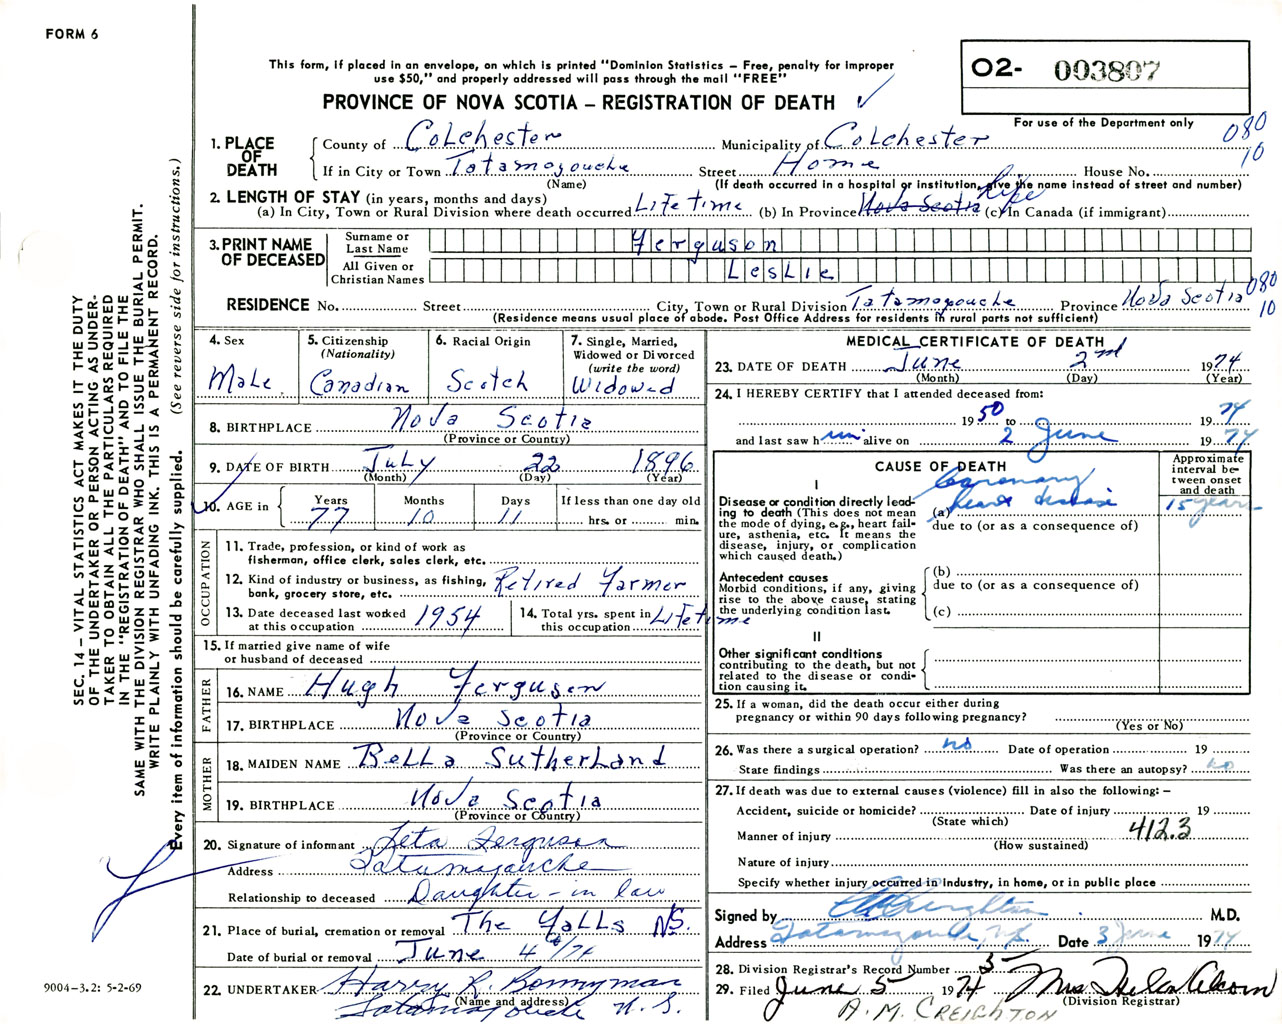 FORM 6
This form, if placed in an envelope, on which is printed "Dominion Statistics – Free, penalty for improper
use $50," and properly addressed will pass through the mail "FREE"
PROVINCE OF NOVA SCOTIA – REGISTRATION OF DEATH
O2- 003807
For use of the Department only
080
10
1. PLACE OF DEATH
County of Colchester Municipality of Colchester
If in City or Town Tatamagouche Street Home House No.
(Name) (If death occurred in a hospital or institution, give the name instead of street and number)
2. LENGTH OF STAY (in years, months and days)
(a) In City, Town or Rural Division where death occurred LifeTime (b) In Province Nova Scotia Life (c) In Canada (if immigrant)
3. PRINT NAME OF DECEASED
Surname or Last Name Ferguson
All Given or Christian Names Leslie
080
10
RESIDENCE No. Street City, Town or Rural Division Tatamagouche Province Nova Scotia
(Residence means usual place of abode. Post Office Address for residents in rural parts not sufficient)
4. Sex
Male
5. Citizenship
(Nationality)
Canadian
6. Racial Origin
Scotch
7. Single, Married,
Widowed or Divorced
(write the word)
Widowed
8. BIRTHPLACE Nova Scotia
(Province or Country)
9. DATE OF BIRTH July 22 1896
(Month) (Day) (Year)
10. AGE in
Years Months Days If less than one day old
77 10 11 hrs. or min.
OCCUPATION
11. Trade, profession, or kind of work as
fisherman, office clerk, sales clerk, etc.
12. Kind of industry or business, as fishing,
bank, grocery store, etc. Retired Farmer
13. Date deceased last worked
at this occupation 1954
14. Total yrs. spent in
this occupation LifeTime
15. If married give name of wife
or husband of deceased
FATHER
16. NAME Hugh Ferguson
17. BIRTHPLACE Nova Scotia
(Province or Country)
MOTHER
18. MAIDEN NAME Bella Sutherland
19. BIRTHPLACE Nova Scotia
(Province or Country)
20. Signature of informant Leta Ferguson
Address Tatamagouche
Relationship to deceased Daughter-in law
21. Place of burial, cremation or removal The Falls N.S.
Date of burial or removal June 4 /74
22. UNDERTAKER Harry R. Bonnyman
(Name and address)
Tatamagouche N.S.
MEDICAL CERTIFICATE OF DEATH
23. DATE OF DEATH June 2nd 1974
(Month) (Day) (Year)
24. I HEREBY CERTIFY that I attended deceased from:
1950 to 1974
and last saw him alive on 2 June 1974
CAUSE OF DEATH
Approximate
interval be-
tween onset
and death
I
Disease or condition directly lead-
ing to death (This does not
mean the mode of dying, e.g., heart fail-
ure, asthenia, etc. It means the
disease, injury, or complication
which caused death.)
Coronary
(a) heart disease 15 years
due to (or as a consequence of)
Antecedent causes
Morbid conditions, if any, giving
rise to the above cause, stating
the underlying condition last.
(b)
due to (or as a consequence of)
(c)
II
Other significant conditions
contributing to the death, but not
related to the disease or condi-
tion causing it.
25. If a woman, did the death occur either during
pregnancy or within 90 days following pregnancy?
(Yes or No)
26. Was there a surgical operation? no Date of operation 19
State findings Was there an autopsy? no
27. If death was due to external causes (violence) fill in also the following: –
Accident, suicide or homicide? Date of injury 19
(State which)
412.3
Manner of injury
(How sustained)
Nature of injury
Specify whether injury occurred in industry, in home, or in public place
Signed by AM Creighton M.D.
Address Tatamagouche, N.S. Date 3 June 1974
28. Division Registrar's Record Number 5
29. Filed June 5 1974 Mrs Helen Alcorn
(Division Registrar)
A. M. CREIGHTON
SEC. 14 – VITAL STATISTICS ACT MAKES IT THE DUTY
OF THE UNDERTAKER OR PERSON ACTING AS UNDER-
TAKER TO OBTAIN ALL THE PARTICULARS REQUIRED
IN THE "REGISTRATION OF DEATH" AND TO FILE THE
SAME WITH THE DIVISION REGISTRAR WHO SHALL ISSUE THE BURIAL PERMIT.
WRITE PLAINLY WITH UNFADING INK. THIS IS A PERMANENT RECORD.
Every item of information should be carefully supplied. (See reverse side for instructions.)
9004-3.2: 5-2-69